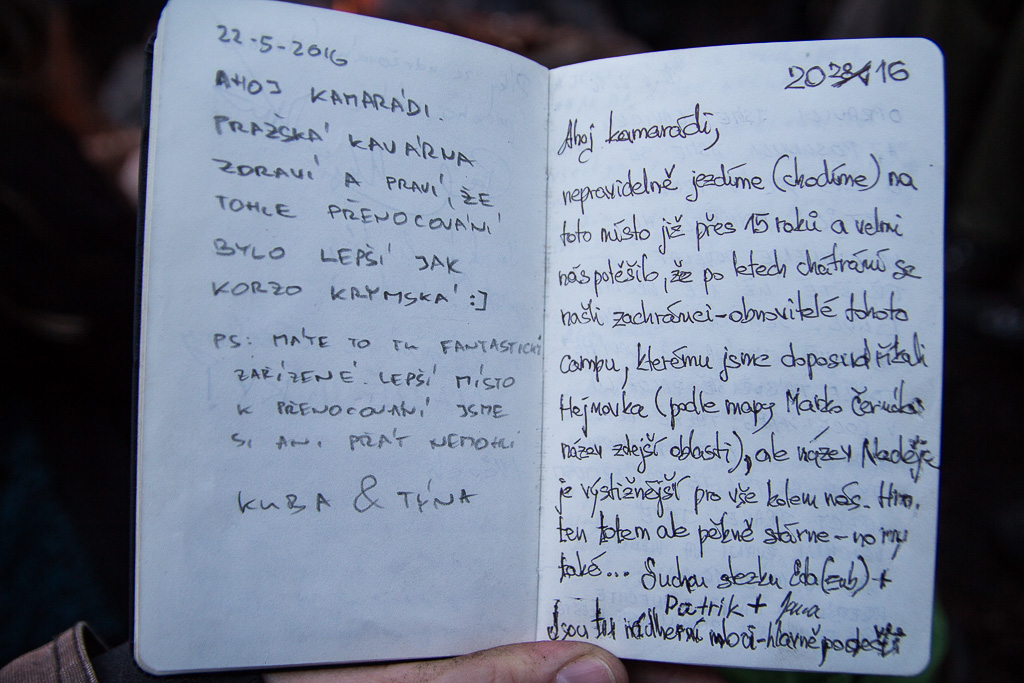 22-5-2016
AHOJ KAMARÁDI.
PRAŽSKÁ KAVÁRNA
ZDRAVÍ A PRAVÍ, ŽE
TOHLE PŘENOCOVÁNÍ
BYLO LEPŠÍ JAK
KORZO KRYMSKÁ :]
PS: MÁTE TO TU FANTASTICKY
ZAŘÍZENÉ. LEPŠÍ MÍSTO
K PŘENOCOVÁNÍ JSME
SI ANI PŘÁT NEMOHLI
KUBA & TÝNA
20 16
Ahoj kamarádi,
nepravidelně jezdíme (chodíme) na
toto místo již přes 15 roků a velmi
nás potěšilo, že po letech chátrání se
našli zachránci-obnovitelé tohoto
campu, kterému jsme doposud říkali
Hejnovka (podle mapy Marko
název zdejší oblasti), ale název Naděje
je výstižnější pro vše kolem nás. Hm,
ten totem ale pěkně stárne - no my
také... Suchou stezku Eda (zub) +
Patrik + Jana
Jsou tu nádherní - hlavně po dešti